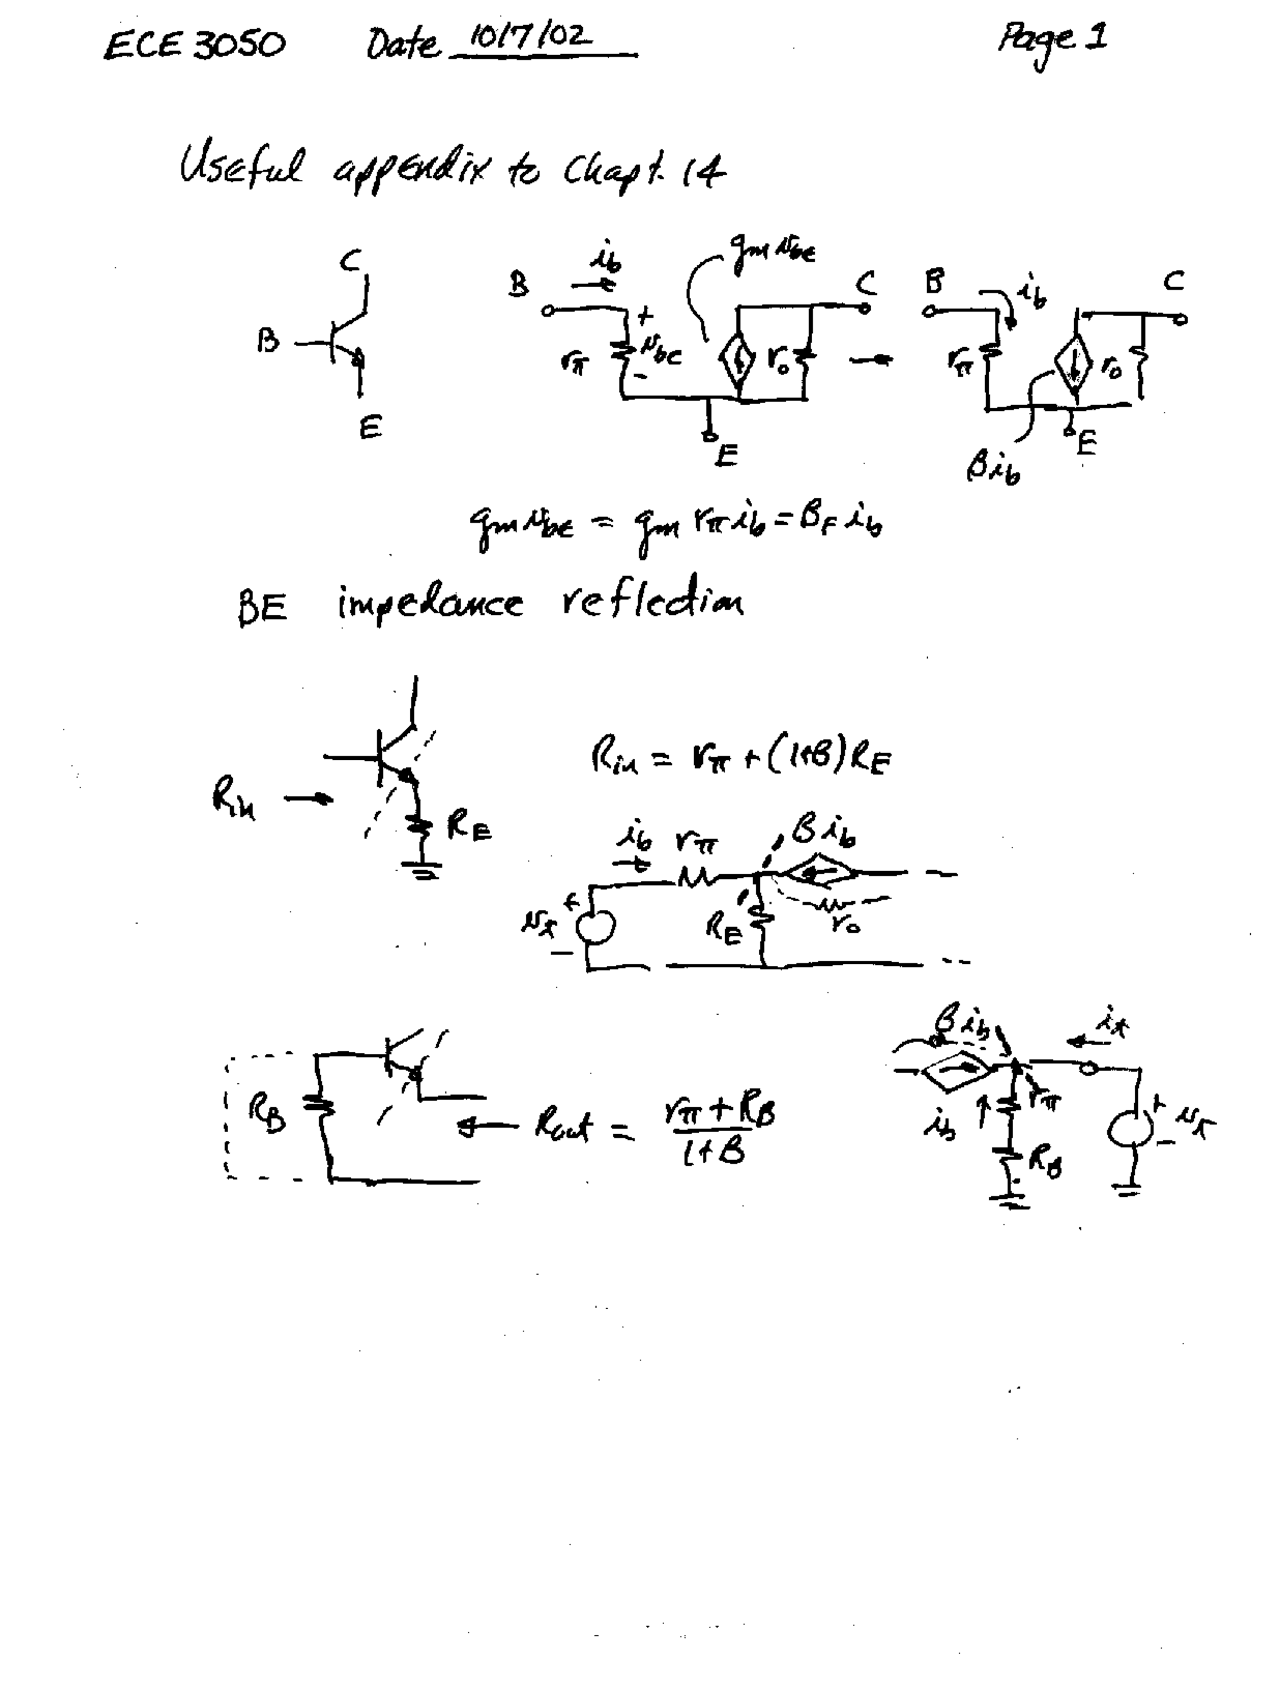 ECE 3050 Date 10/7/02 Page 1
Useful appendix to Chapt. 14
C
B
E
B
i_b
+
v_be
-
r_π
g_m v_be
r_o
C
E
B
i_b
r_π
r_o
C
E
β i_b
g_m v_be = g_m r_π i_b = β_F i_b
BE impedance reflection
R_in
R_E
R_in = r_π + (1+β) R_E
i_b r_π β i_b
v_x
+
-
R_E
r_o
R_B
R_out = (r_π + R_B) / (1+β)
β i_b
i_x
i_b
r_π
R_B
+
v_x
-